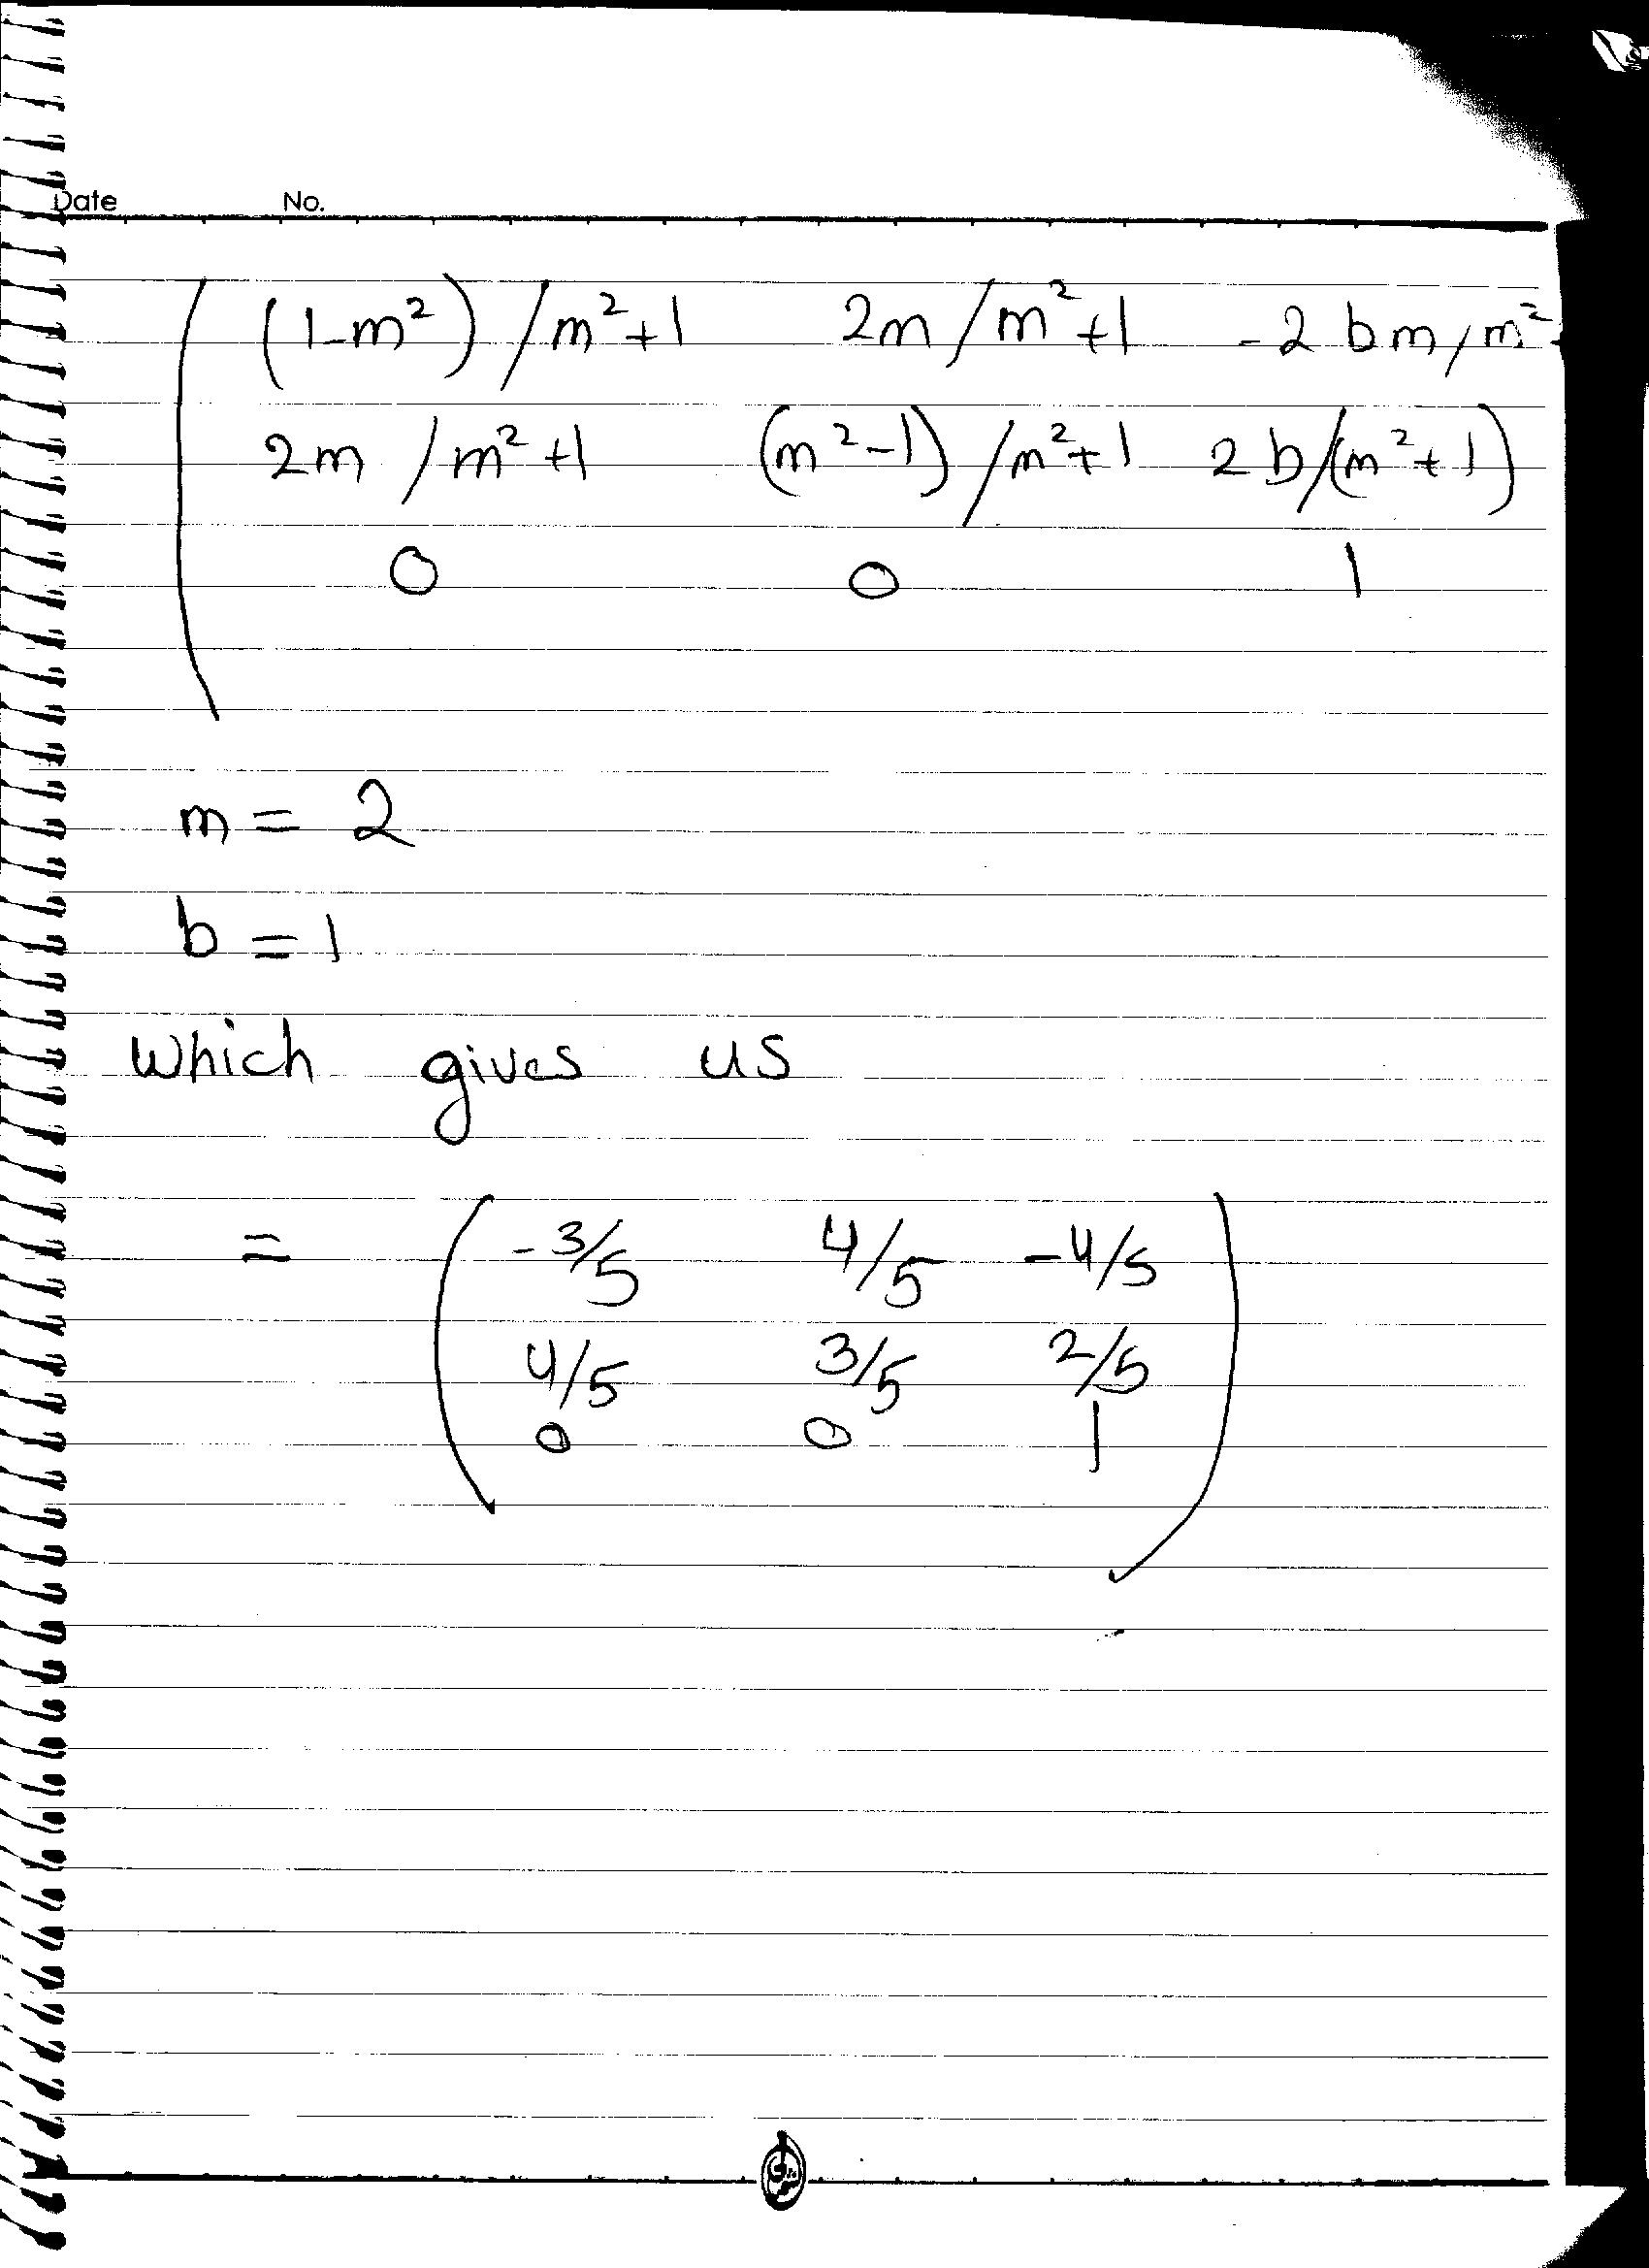 Date No.
(1-m²)/m²+1 2m/m²+1 -2bm/m²
2m/m²+1 (m²-1)/m²+1 2b/(m²+1)
0 0 1
m = 2
b = 1
which gives us
= -3/5 4/5 -4/5
4/5 3/5 2/5
0 0 1